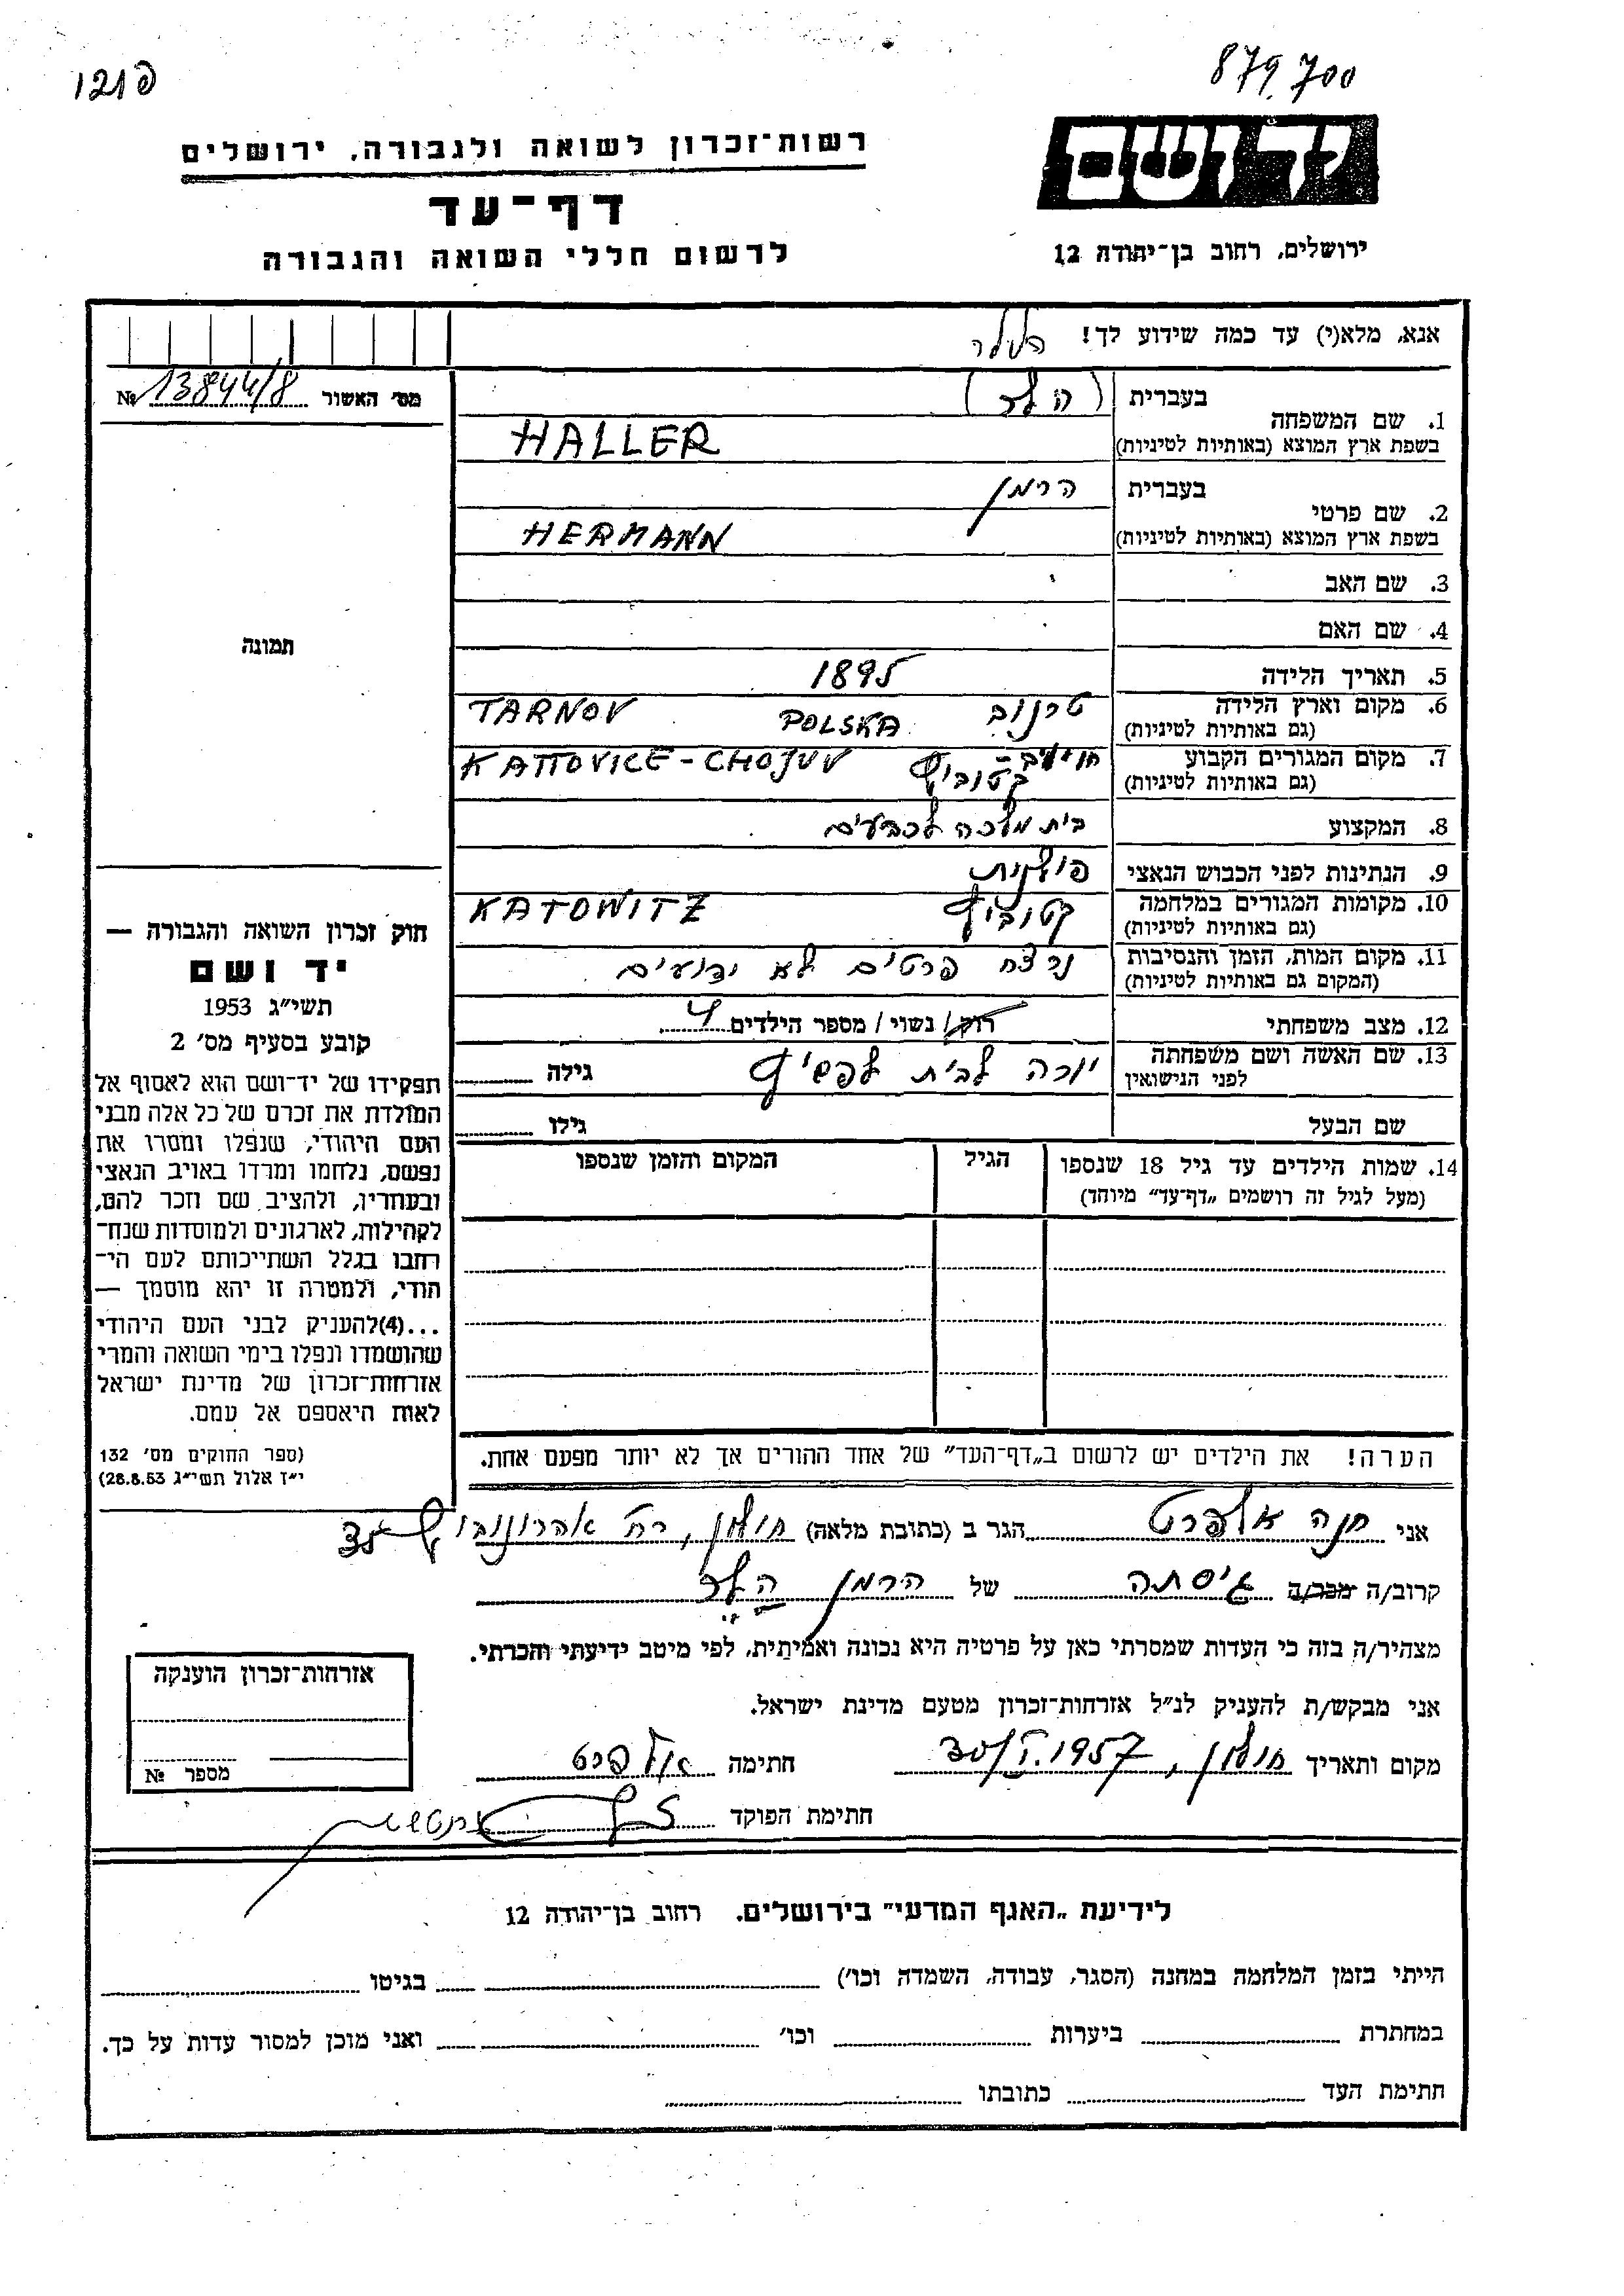 פ121
879.700
יד ושם
רשות־זכרון לשואה ולגבורה, ירושלים
דף־עד
לרשום חללי השואה והגבורה
ירושלים, רחוב בן־יהודה 12
אנא, מלא(י) עד כמה שידוע לך!
מס׳ האשור № 13844/8
בעברית (הלר)
1. שם המשפחה
בשפת ארץ המוצא (באותיות לטיניות) HALLER
בעברית הרמן
2. שם פרטי
בשפת ארץ המוצא (באותיות לטיניות) HERMANN
3. שם האב
4. שם האם
תמונה
5. תאריך הלידה 1895
6. מקום וארץ הלידה טרנוב POLSKA TARNOV
(גם באותיות לטיניות)
7. מקום המגורים הקבוע קטוביץ KATTOVICE - CHOJUV
(גם באותיות לטיניות)
8. המקצוע בית מלאכה לכבעים
9. הנתינות לפני הכבוש הנאצי פולנית
10. מקומות המגורים במלחמה קטוביץ KATOWITZ
(גם באותיות לטיניות)
11. מקום המות, הזמן והנסיבות נרצח פרטים לא ידועים
(המקום גם באותיות לטיניות)
12. מצב משפחתי רוק/ נשוי/ מספר הילדים 4
13. שם האשה ושם משפחתה לבית גילה
לפני הנישואין
שם הבעל גילו
14. שמות הילדים עד גיל 18 שנספו הגיל המקום והזמן שנספו
(מעל לגיל זה רושמים „דף־עד״ מיוחד)
חוק זכרון השואה והגבורה —
יד ושם
תשי״ג 1953
קובע בסעיף מס׳ 2
תפקידו של יד־ושם הוא לאסוף אל
המולדת את זכרם של כל אלה מבני
העם היהודי, שנפלו ומסרו את
נפשם, נלחמו ומרדו באויב הנאצי
ובעוזריו, ולהציב שם וזכר להם,
לקהילות, לארגונים ולמוסדות שנח־
רבו בגלל השתייכותם לעם הי־
הודי, ולמטרה זו יהא מוסמך —
...(4)להעניק לבני העם היהודי
שהושמדו ונפלו בימי השואה והמרי
אזרחות־זכרון של מדינת ישראל
לאות היאספם אל עמם.
(ספר החוקים מס׳ 132
י״ז אלול תשי״ג 28.8.53)
הערה! את הילדים יש לרשום ב„דף־העד״ של אחד ההורים אך לא יותר מפעם אחת.
אני חנה אלפרט הגר ב (כתובת מלאה) חולון, רח׳ אהרונוביץ
קרוב/ה מכר/ה גיסתה של הרמן הלר
מצהיר/ה בזה כי העדות שמסרתי כאן על פרטיה היא נכונה ואמיתית, לפי מיטב ידיעתי והכרתי.
אני מבקש/ת להעניק לנ״ל אזרחות־זכרון מטעם מדינת ישראל.
מקום ותאריך חולון, 1957 חתימה אלפרט
חתימת הפוקד
אזרחות־זכרון הוענקה
מספר №
לידיעת „האגף המדעי״ בירושלים. רחוב בן־יהודה 12
הייתי בזמן המלחמה במחנה (הסגר, עבודה, השמדה וכו׳) בגיטו
במחתרת ביערות וכו׳ ואני מוכן למסור עדות על כך.
חתימת העד כתובתו